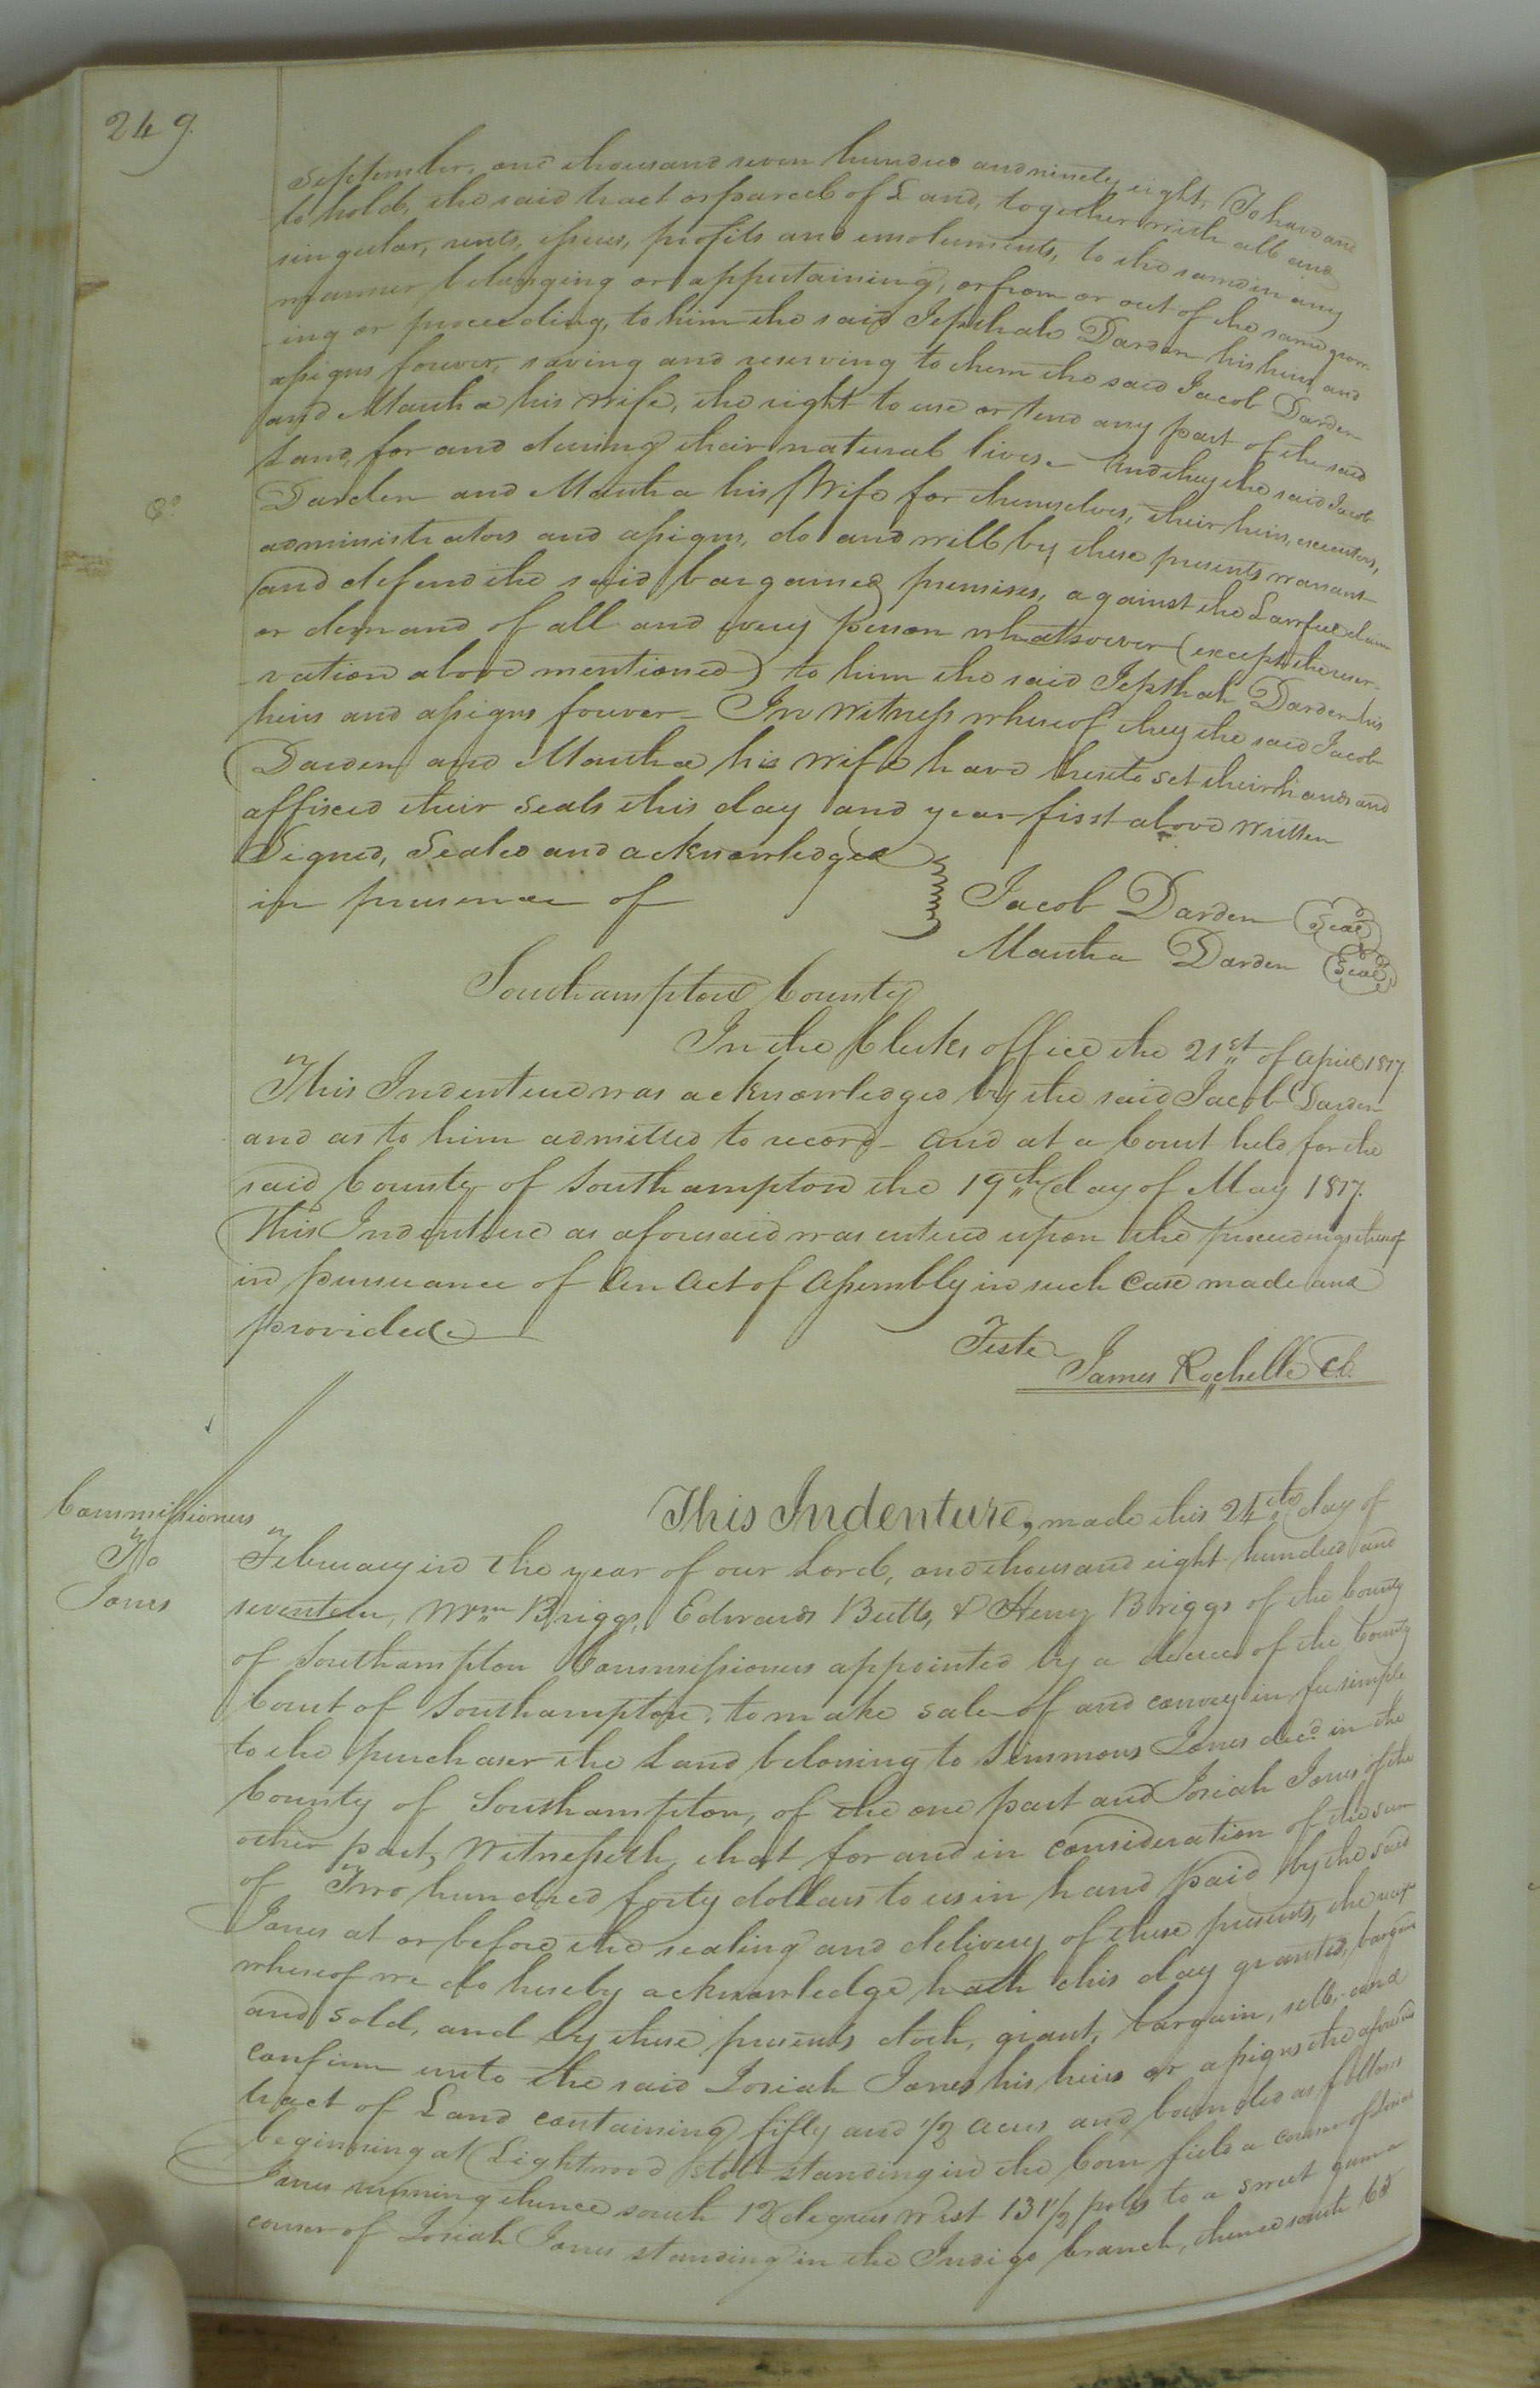 249.
September, one thousand seven hundred and ninety eight, To have and
to hold, the said tract or parcel of Land, together with all and
singular, rents, issues, profits and emoluments, to the same in any
manner belonging or appertaining, or from or out of the same grow-
ing or proceeding, to him the said Jepthah Darden his heirs and
assigns forever, saving and reserving to them the said Jacob Darden
and Martha his wife, the right to use or tend any part of the said
Land, for and during their natural lives - And they the said Jacob
Darden and Martha his Wife for themselves, their heirs, executors,
administrators and assigns, do and will by these presents warrant
and defend the said bargained premises, against the Lawful claim
or demand of all and every person whatsoever (except the reser-
vation above mentioned) to him the said Jepthah Darden his
heirs and assigns forever - In Witness whereof they the said Jacob
Darden and Martha his wife have hereto set their hands and
affixed their seals this day and year fisst above written
Signed, Sealed and acknowledged
in presence of
Jacob Darden (Seal)
Martha Darden (Seal)
Southampton County
In the Clerks office the 21st of April 1817.
This Indenture was acknowledged by the said Jacob Darden
and as to him admitted to record - and at a Court held for the
said County of Southampton the 19th day of May 1817.
This Indenture as aforesaid was entered upon the proceedings thereof
in pursuance of an Act of Assembly in such Case made and
provided
Teste
James Rochelle C.C.
Commissioners
To
Jones
This Indenture, made this 24th day of
February in the year of our Lord, one thousand eight hundred and
seventeen, Wm Briggs, Edward Butts, & Henry Briggs of the County
of Southampton Commissioners appointed by a decree of the County
Court of Southampton, to make sale of and convey in fee simple
to the purchaser the Land beloning to Simmons Jones decd. in the
County of Southampton, of the one part and Josiah Jones of the
other part, Witnesseth, that for and in consideration of the sum
of Two hundred forty dollars to us in hand paid by the said
Jones at or before the sealing and delivery of these presents, the receipt
whereof we do hereby acknowledge hath this day granted, bargain
and sold, and by these presents doth, grant, bargain, sell, and
confirm unto the said Josiah Jones his heirs or assigns the aforesaid
tract of Land containing fifty and 1/2 acres and bounded as follows
beginning at Lightwood stob standing in the Corn field a corner of Josiah
Jones running thence south 12 degrees West 131 1/2 poles to a sweet gum a
corner of Josiah Jones standing in the Indigo branch, thence south 65